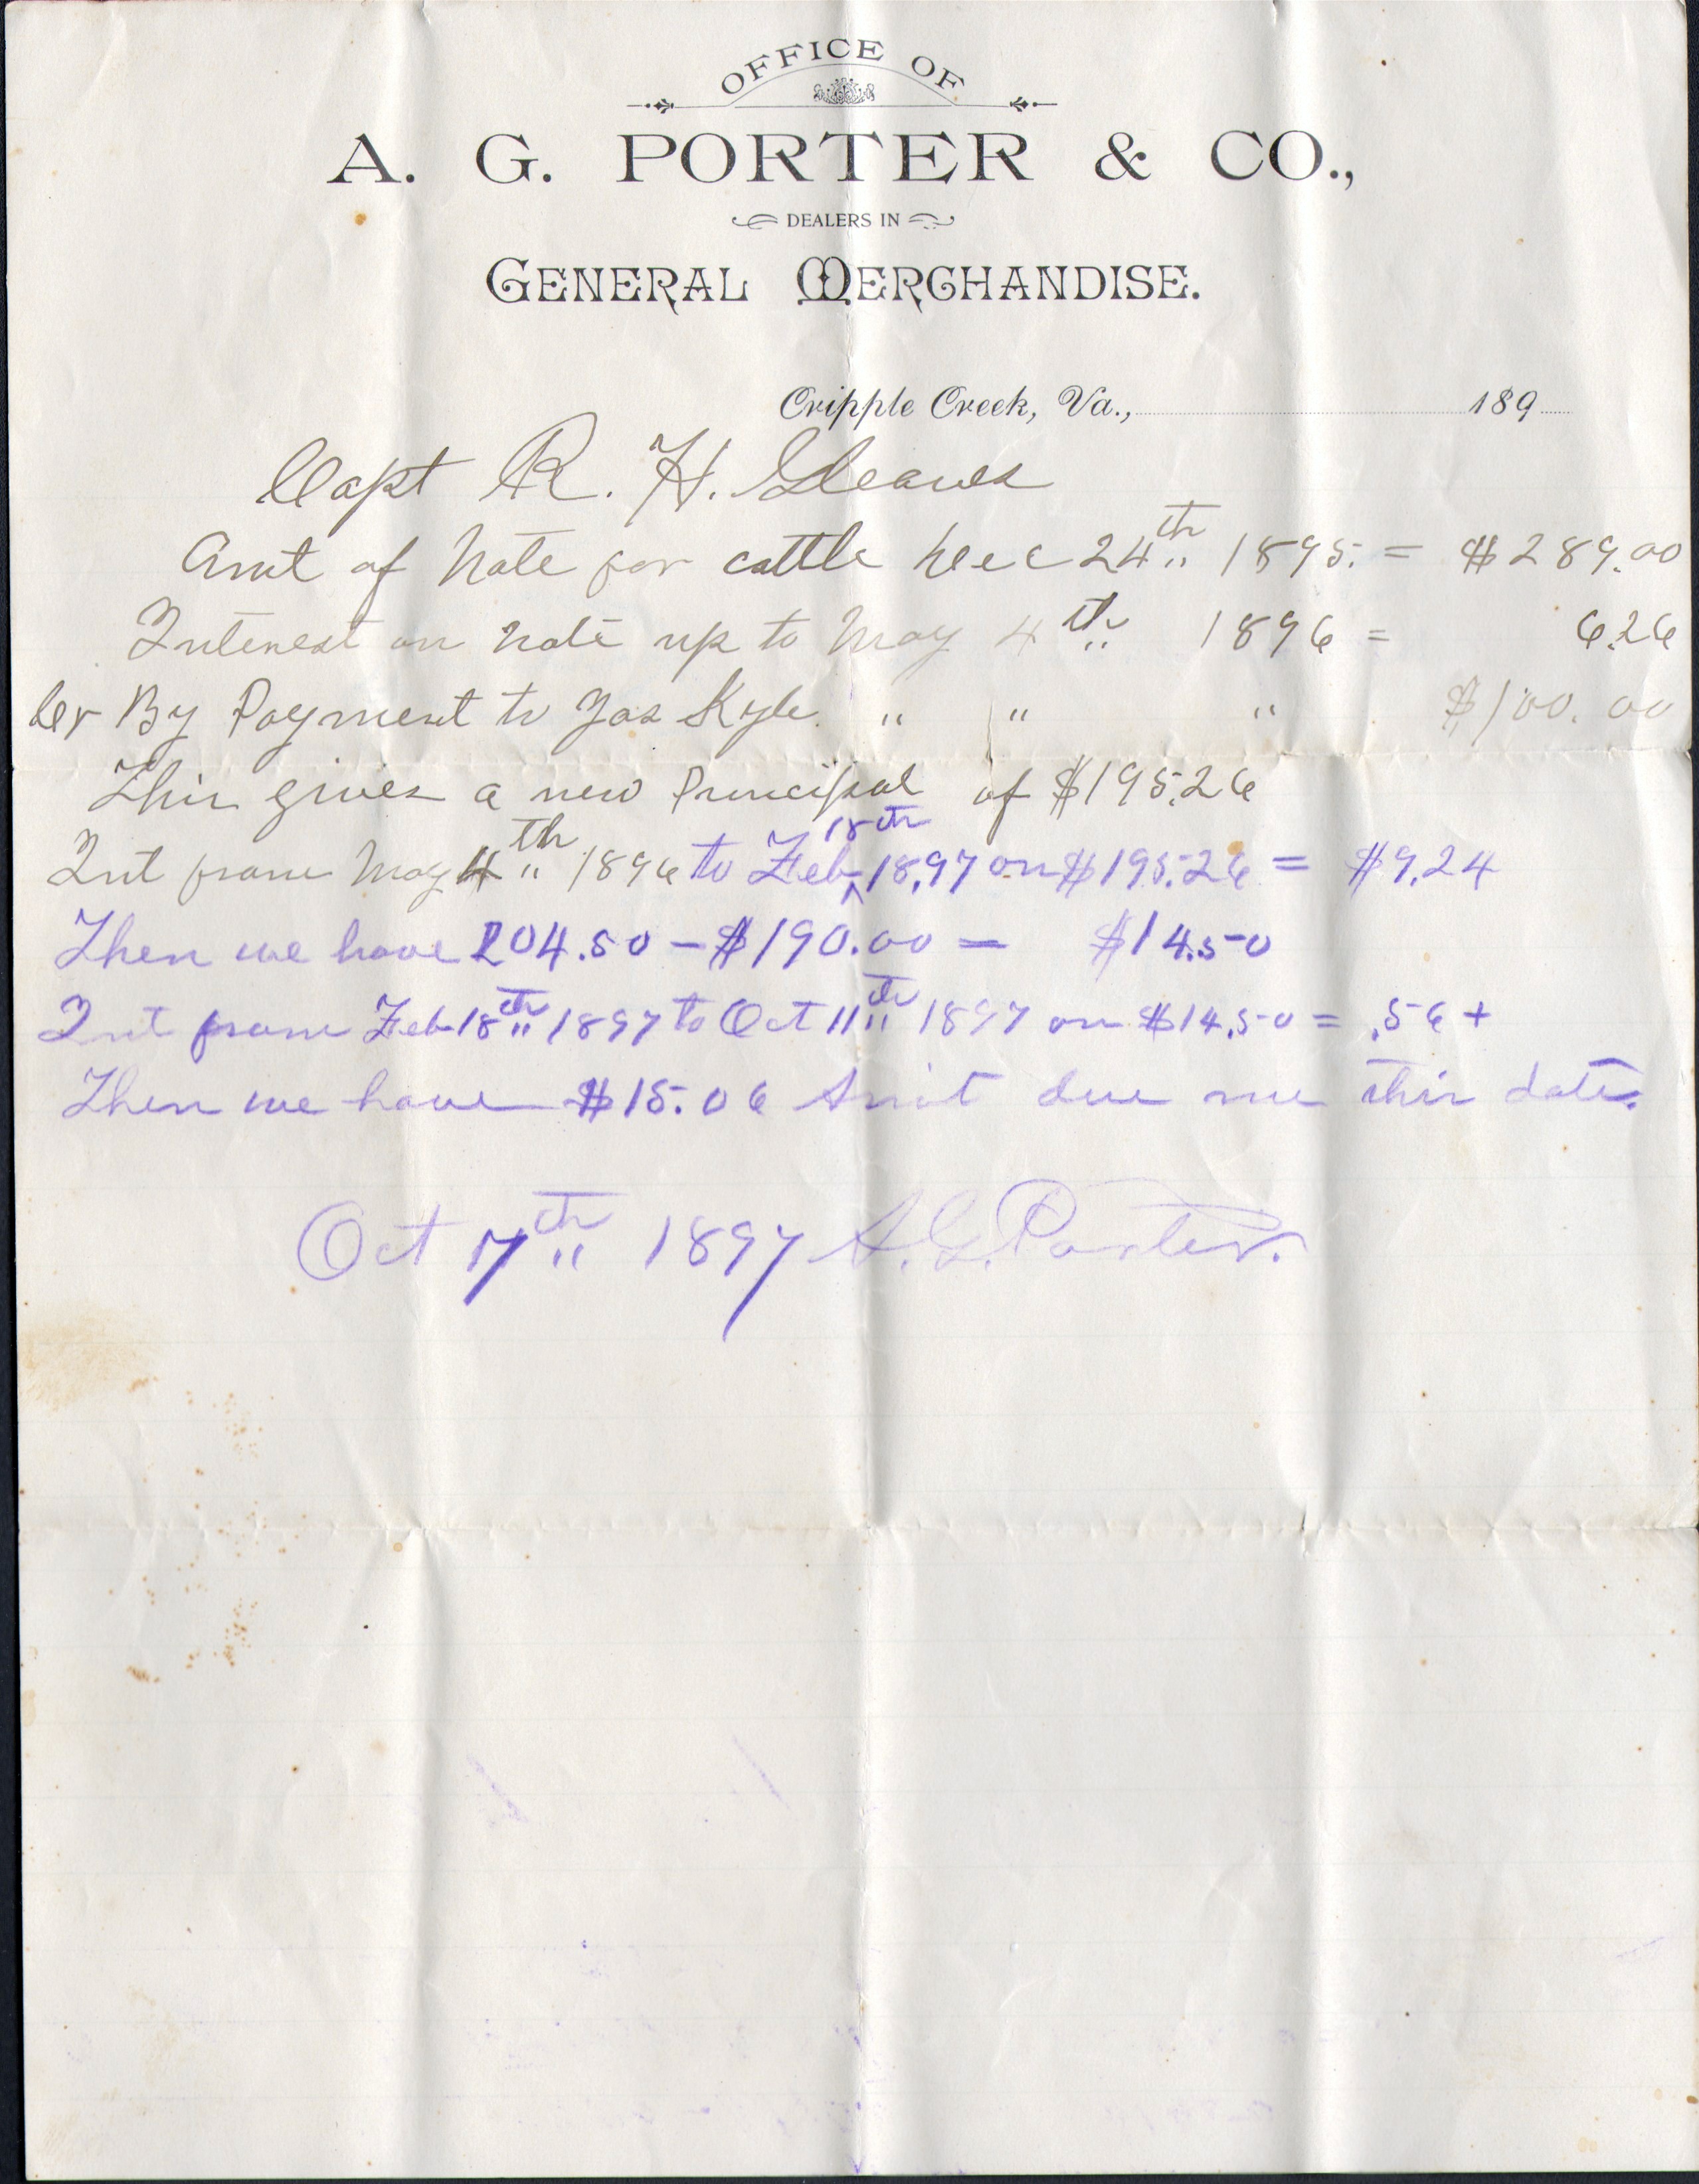 OFFICE OF
A. G. PORTER & CO.,
DEALERS IN
GENERAL MERCHANDISE.
Cripple Creek, Va., 189
Capt R. H. Gleaves
Amt of Note for cattle Dec 24th 1895. = $289.00
Interest on note up to May 4th 1896 = 6.26
Cr By Payment to Jas Kyle. " " " $100.00
This gives a new Principal of $195.26
Int from May 4th 1896 to Feb 18th 1897 on $195.26 = $9.24
Then we have 204.50 - $190.00 = $14.50
Int from Feb 18th 1897 to Oct 11th 1897 on $14.50 = .56 +
Then we have $15.06 Am't due me this date.
Oct 7th 1897 A. G. Porter.